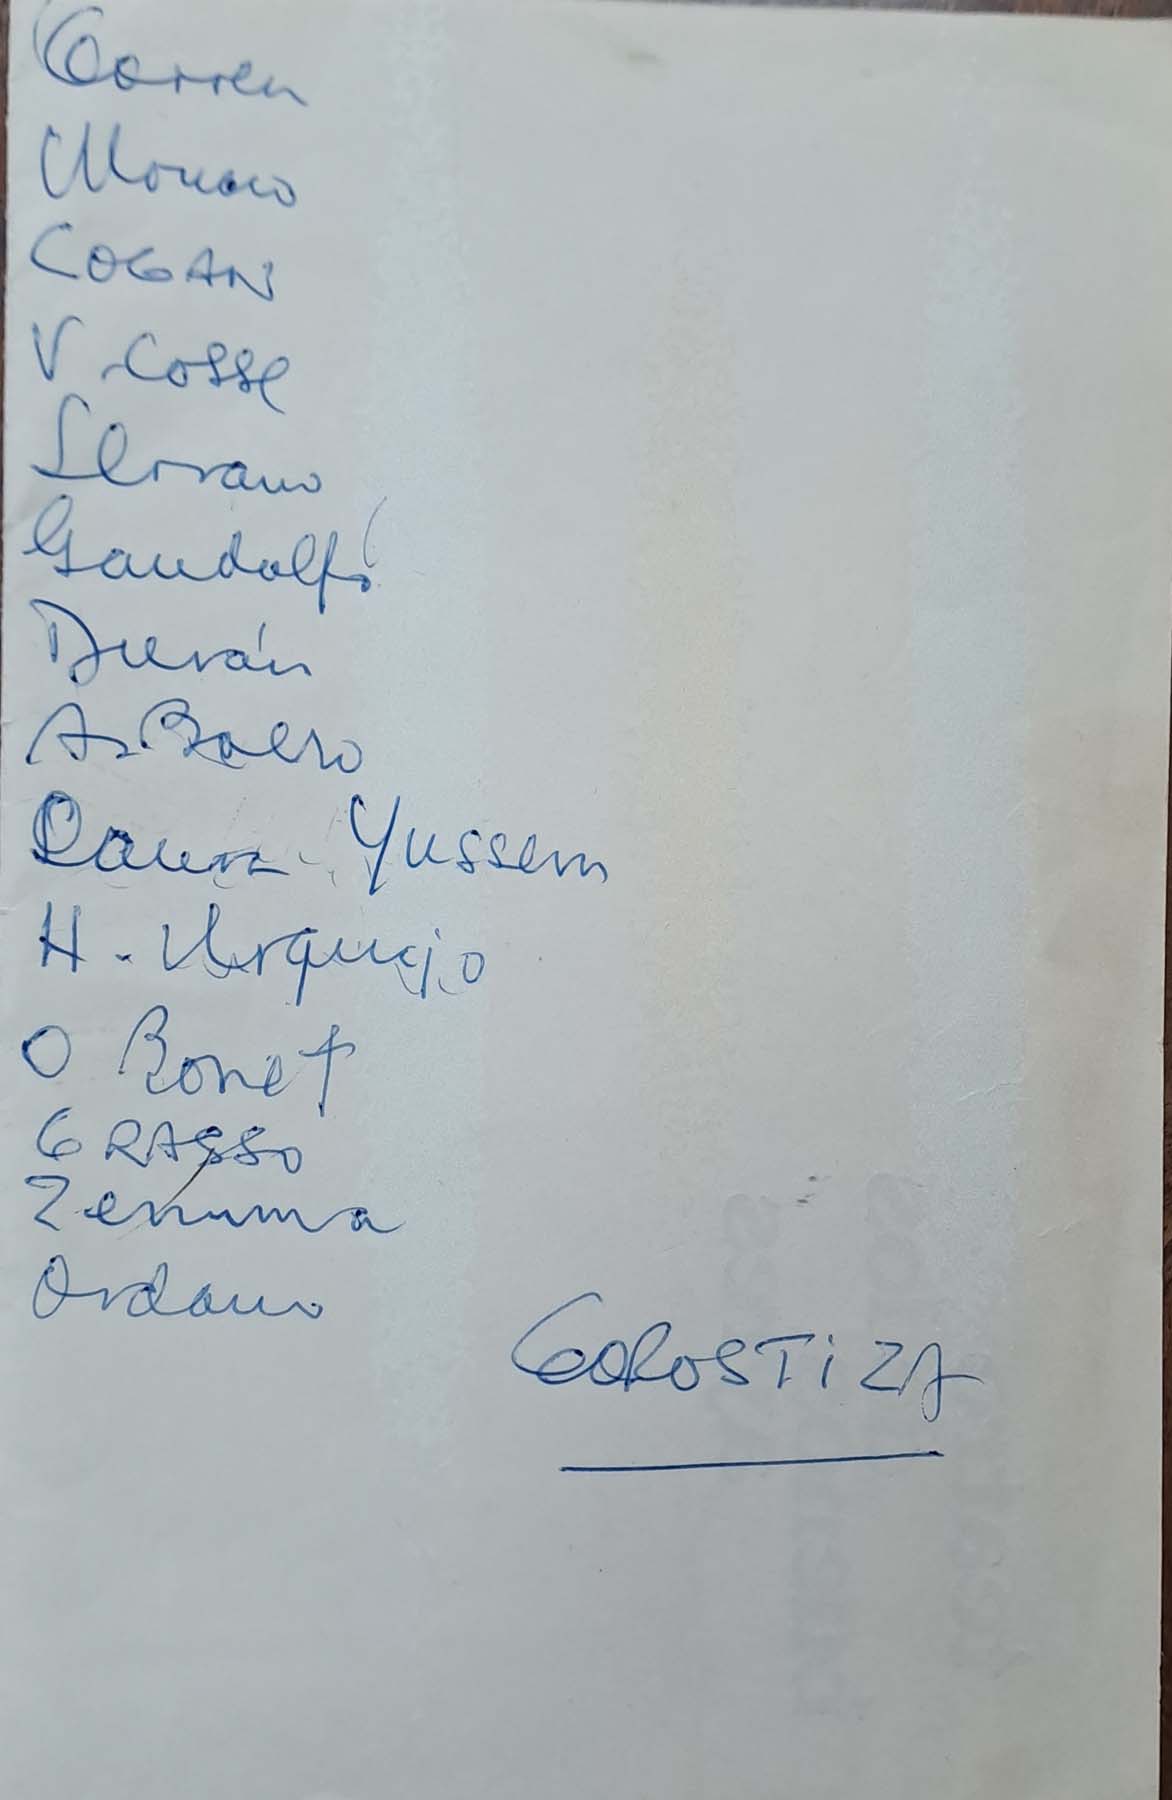 Monaco
COGAN
V. Cosse
Serrano
Gandolfo
Durán
A. Boero
Laura Yussem
H. Urquijo
O Bonet
GRASSO
Zemma
Ordano
GOROSTIZA